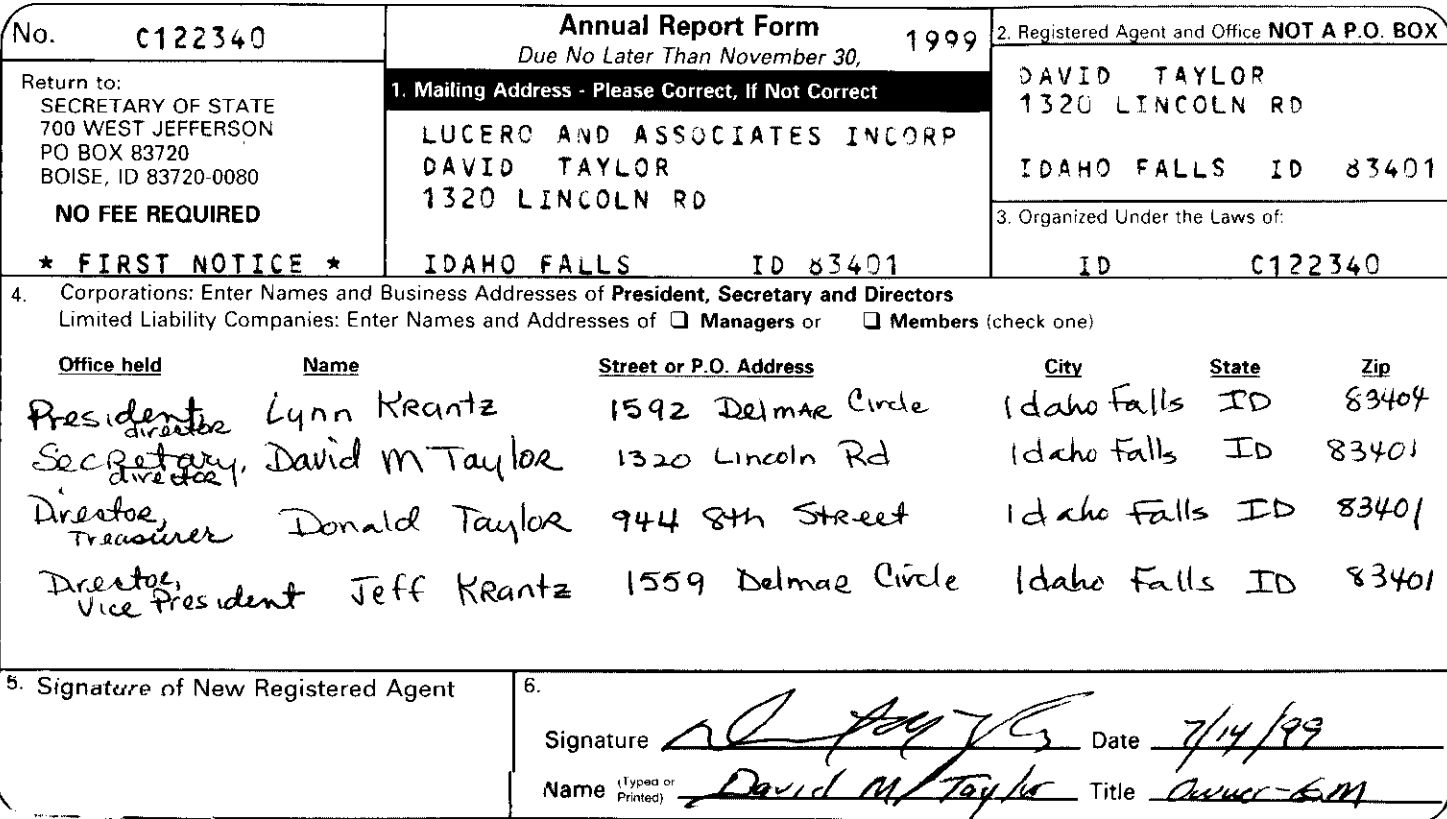 No. C122340
Return to:
SECRETARY OF STATE
700 WEST JEFFERSON
PO BOX 83720
BOISE, ID 83720-0080
NO FEE REQUIRED
* FIRST NOTICE *
Annual Report Form 1999
Due No Later Than November 30,
1. Mailing Address - Please Correct, If Not Correct
LUCERO AND ASSOCIATES INCORP
DAVID TAYLOR
1320 LINCOLN RD
IDAHO FALLS ID 83401
2. Registered Agent and Office NOT A P.O. BOX
DAVID TAYLOR
1320 LINCOLN RD
IDAHO FALLS ID 83401
3. Organized Under the Laws of:
ID C122340
4. Corporations: Enter Names and Business Addresses of President, Secretary and Directors
Limited Liability Companies: Enter Names and Addresses of ☐ Managers or ☐ Members (check one)
Office held Name Street or P.O. Address City State Zip
President, director Lynn Krantz 1592 Delmar Circle Idaho Falls ID 83404
Secretary, director David M Taylor 1320 Lincoln Rd Idaho Falls ID 83401
Director, Treasurer Donald Taylor 944 8th Street Idaho Falls ID 83401
Director, Vice President Jeff Krantz 1559 Delmar Circle Idaho Falls ID 83401
5. Signature of New Registered Agent
6.
Signature Date 7/14/99
Name (Typed or Printed) David M Taylor Title Owner-GM